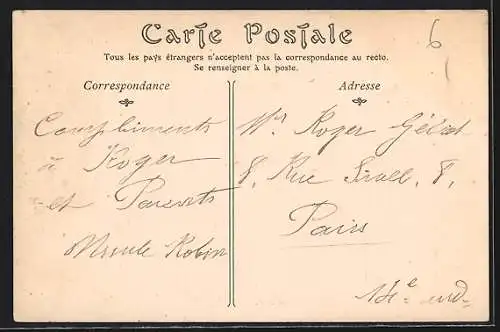 Carte Postale
Tous les pays étrangers n'acceptent pas la correspondance au recto.
Se renseigner à la poste.
Correspondance
Compliments
à Roger
et Parents
Robin
Adresse
6
Mr Roger
8, Rue 8,
Paris
14e